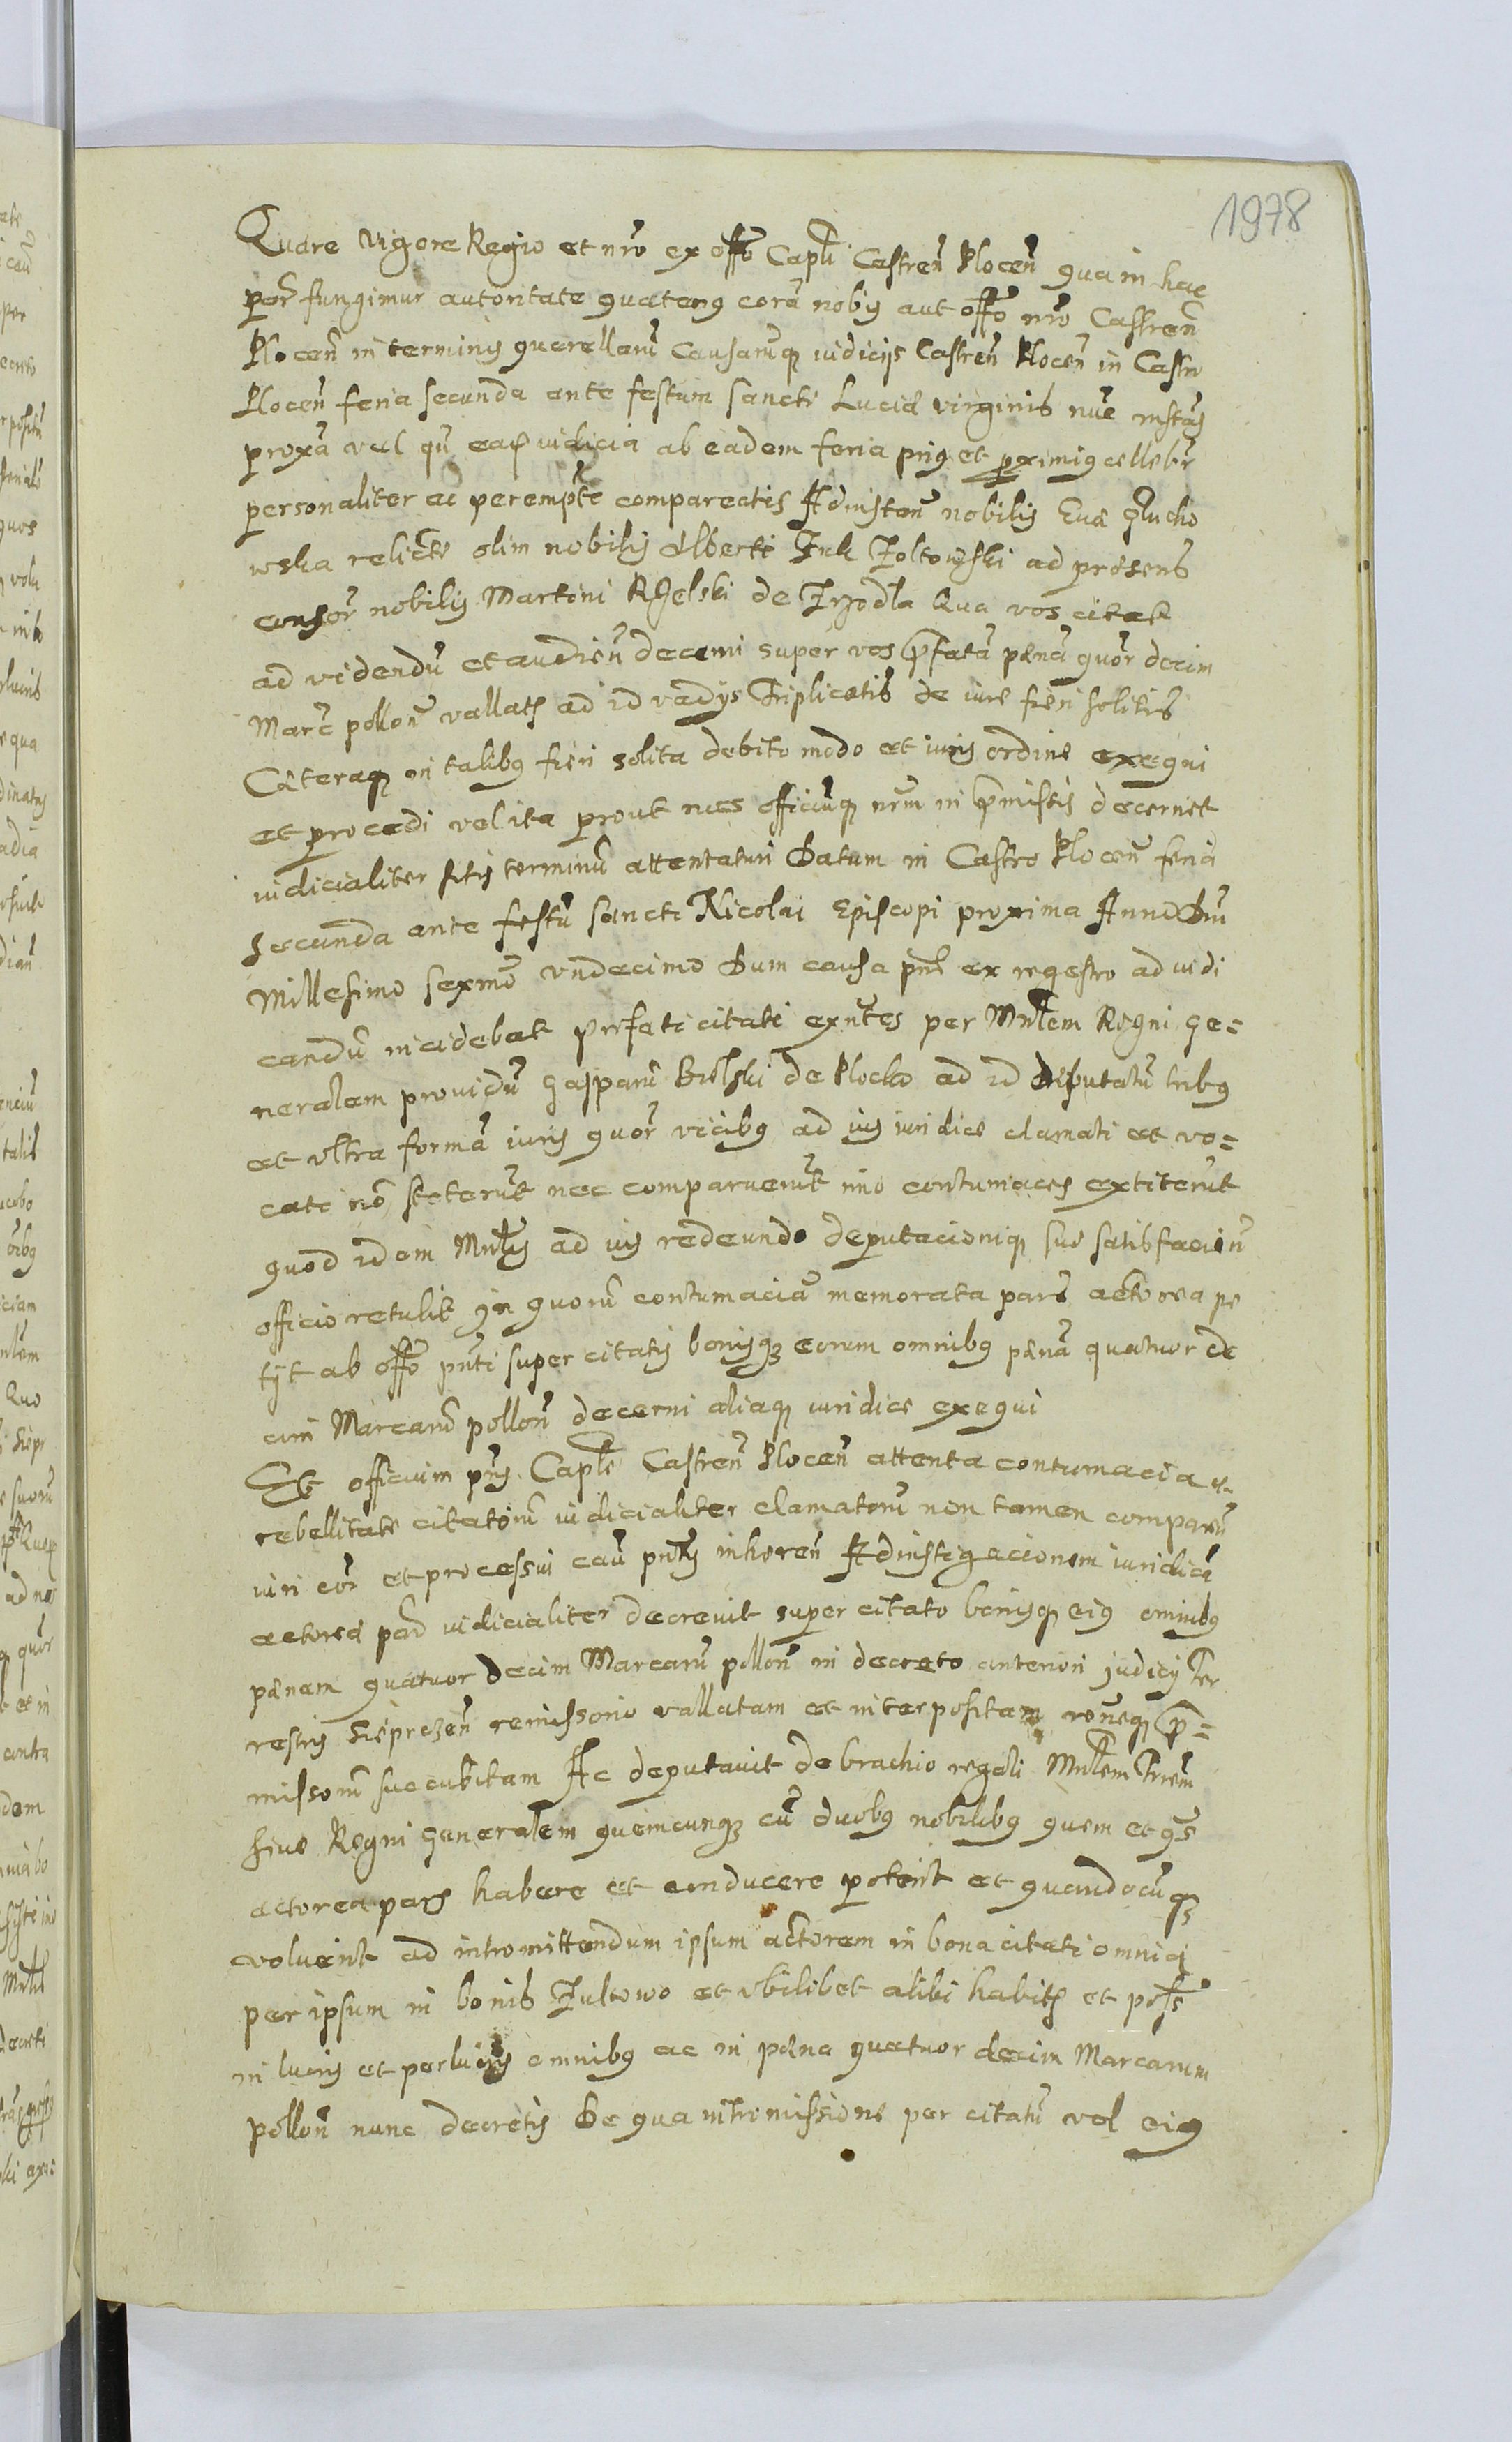 1978
Quare vigore Regio et nrō ex offō Capłi Castreñ Ploceñ qua in hac
par̃ fungimur autoritate quateng corã nobis aut offō nrō Castreñ
Ploceñ in terminis querellarũ causarũq iudicijs Castreñ Ploceñ in Castro
Ploceñ feria secunda ante festum sancti Luciæ virginis nũc instañ
proxã vel qũ eaq iudicia ab eadem feria prig et proximig cellebr̃
personaliter ac perempt̃e compareatis Ad instañ nobilis Euæ Glucho
wska relictæ olim nobilis Alberti Zoltowski ad præsens
consor̃ nobilis Martini de Zrzodla Qua vos citat
ad videndũ et audieñ decerni super vos p̄fatã pænã quor̃ decim
Marc̃ polloñ vallatą ad id vadijs Triplicatis de iure fieri solitis
Cæteraq in talibg fieri solita debito modo et iuris ordine exequi
et procedi vel ita prout nos officiũq nrũm in p̄missis decernet
iudicialiter sitis terminũ attentaturi Datum in Castro Ploceñ feria
secunda ante festũ sancti Nicolai Episcopi proxima Anno Dñi
Millesimo sexmõ vndecimo Dum causa pñs ex regestro ad iudi
candũ incidebat præfati citati exñtes per Mñlem Regni Ge=
neralem prouidũ Gasparũ Bielski de Plocko ad id deputatũ tribg
et vltra formã iuris quor̃ vicibg ad ius iuridice clamati et vo=
cati nõ steterũt nec comparuerũt imo contumaces extiterũt
quod idem Mñlis ad ius redeundo deputacioniq suæ satisfacieñ
officio retulit in quorũ contumaciã memorata pars actorea pe
tijt ab offō pñti super citatis bonisq eorum omnibg pænã quatuor de
cim Marcarũ polloñ decerni aliaq iuridice exequi
Et officium pñs Capłe Castreñ Ploceñ attenta contumacia et
rebellitate citatorũ iudicialiter clamatorũ non tamen comparũ
iuri eor̃ et processui caũ pñtis inhæreñ Ad instigacionem iuridicã
actoreæ par̃ iudicialiter decreuit super citato bonisq eig omnibg
pænam quatuor decim Marcarũ polloñ in decreto anteriori judicij Ter
restris Sieprczeñ remissorio vallatam et interpositam p̄=
missorũ succubitam Ac deputauit de brachio regali Mñlem Trrem
siue Regni Generalem quemcunq cũ duobg nobilibg quem et qs
actorea pars habere et conducere poterit et quandocũq
voluerit ad intromittendum ipsum actorem in bona citati omnia
per ipsum in bonis Zultowo et vbilibet alibi habitą et poss̃
in lucris et perlucris omnibg ac in pæna quatuor decim Marcarum
polloñ nunc decretis De qua intromissione per citatũ vel eig